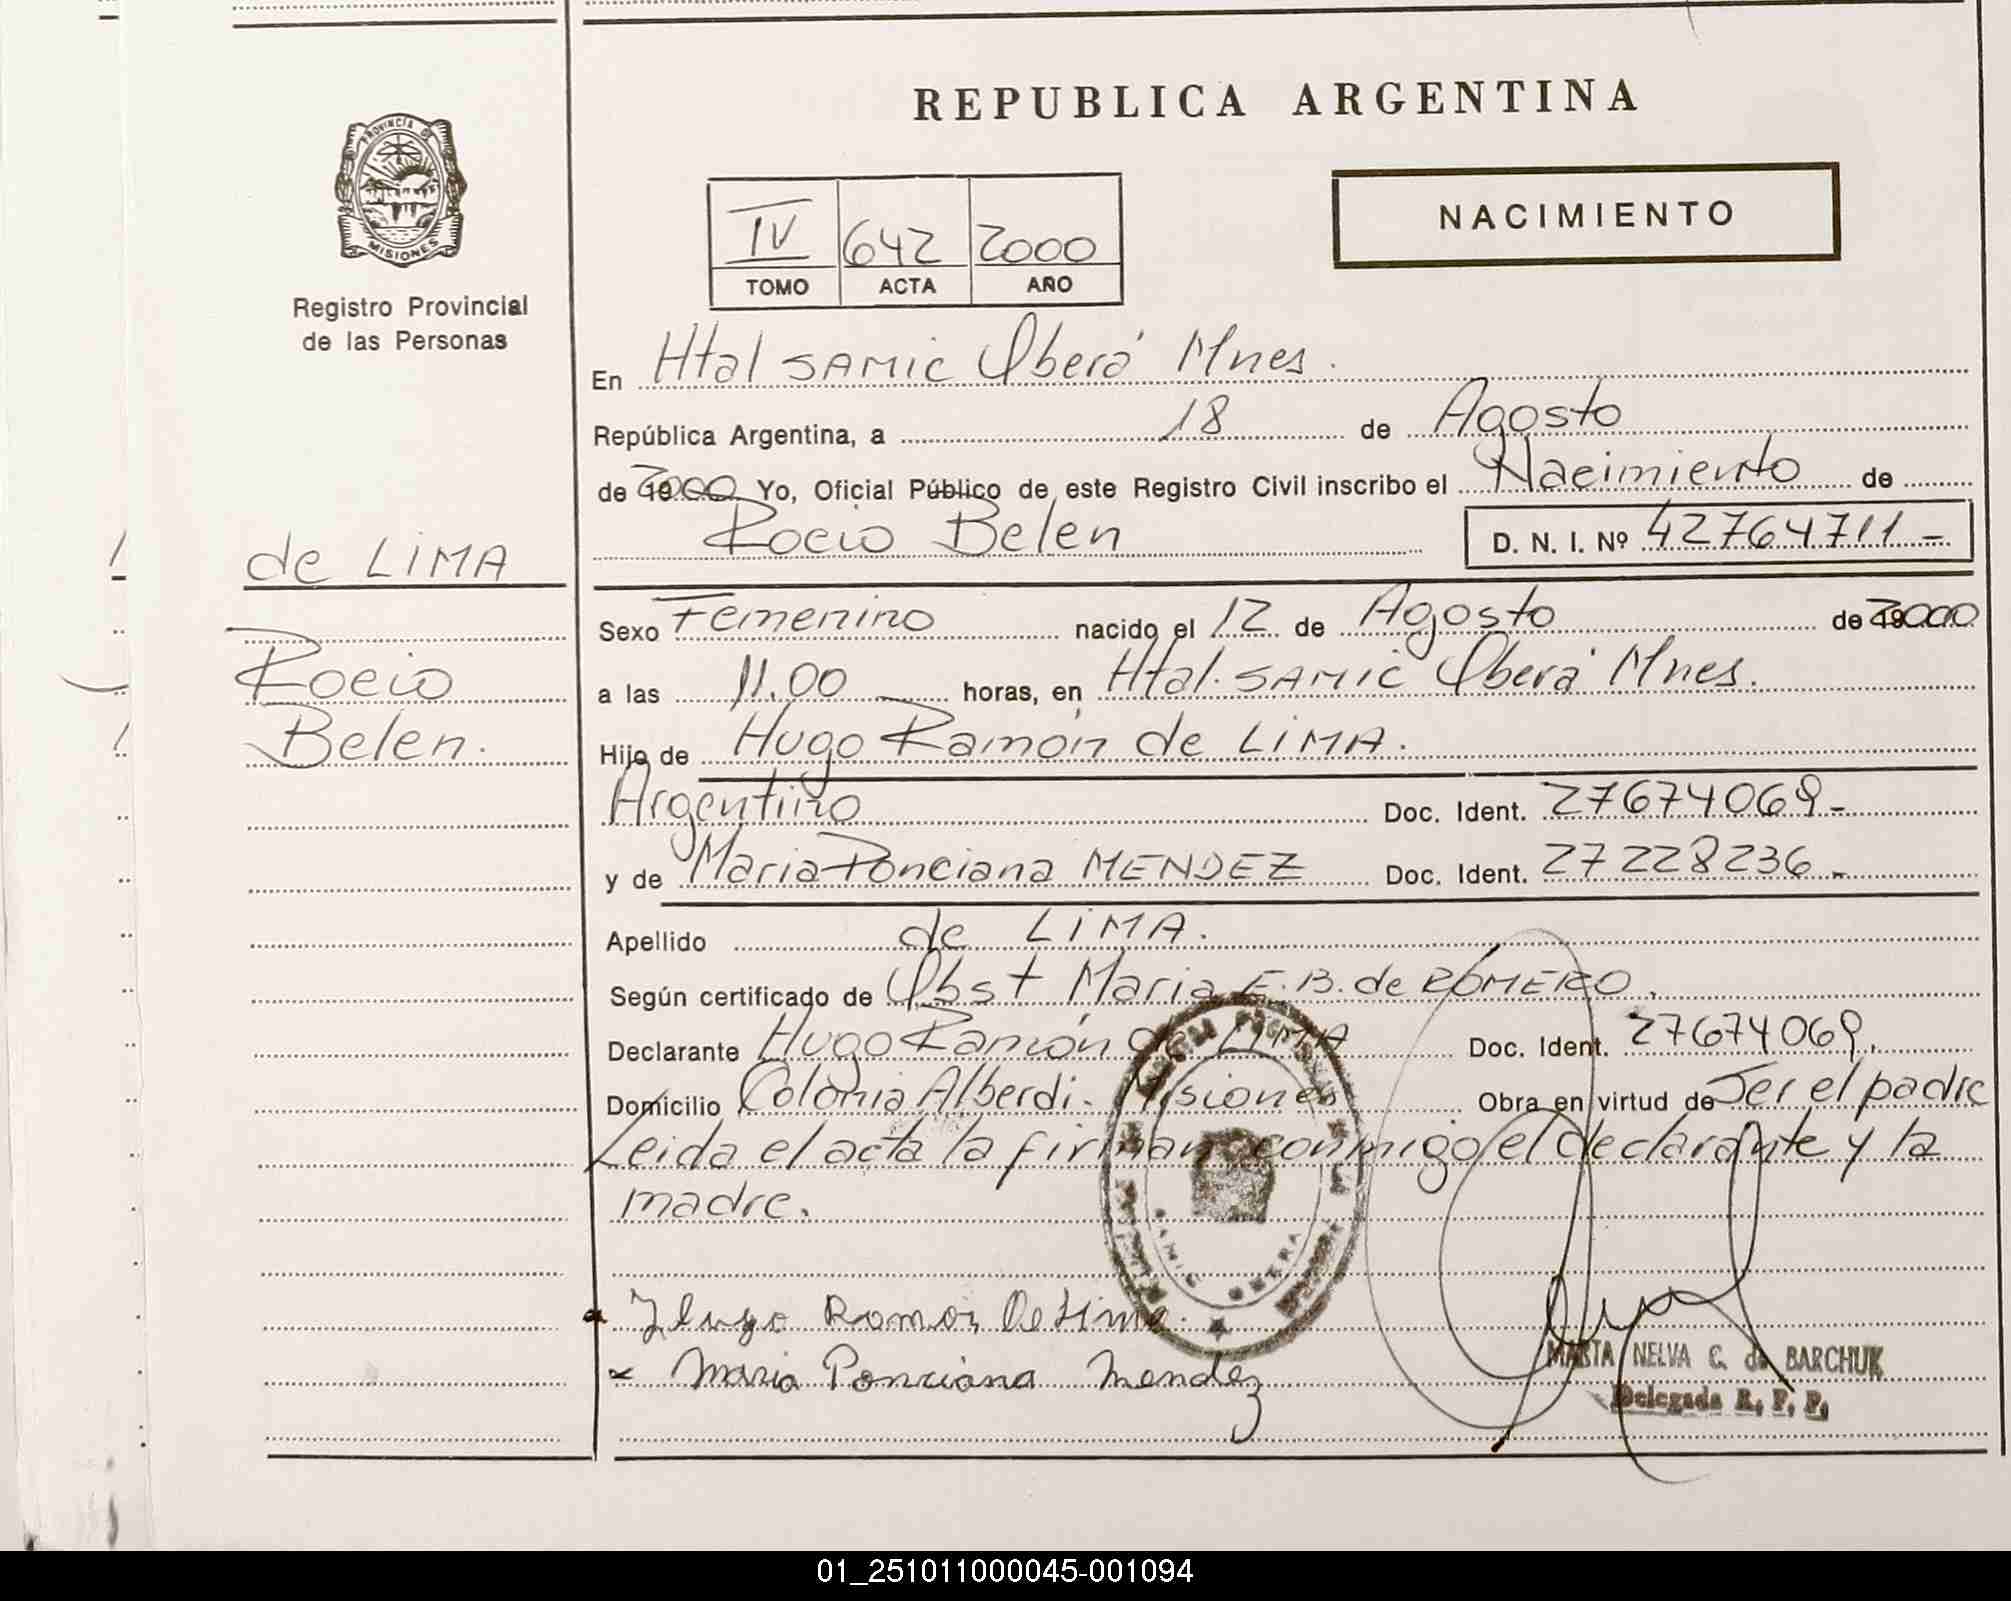 REPUBLICA ARGENTINA
PROVINCIA DE
MISIONES
Registro Provincial
de las Personas
NACIMIENTO
IV 642 2000
TOMO ACTA AÑO
En Htal SAMIC Oberá Mnes.
República Argentina, a 18 de Agosto
de 2000 Yo, Oficial Público de este Registro Civil inscribo el Nacimiento de
Rocio Belen D. N. I. Nº 42764711-
de LIMA
Rocio
Belen.
Sexo Femenino nacido el 12 de Agosto de 2000
a las 11.00 horas, en Htal. SAMIC Oberá Mnes.
Hijo de Hugo Ramón de LIMA.
Argentino Doc. Ident. 27674069-
y de Maria Ponciana MENDEZ Doc. Ident. 27228236-
Apellido de LIMA.
Según certificado de Obst Maria E. B. de ROMERO.
Declarante Hugo Ramón de LIMA Doc. Ident. 27674069.
Domicilio Colonia Alberdi - Misiones Obra en virtud de Ser el padre
Leida el acta la firman conmigo el declarante y la
madre.
SAMIC OBERA
Hugo Ramon De Lima
Maria Ponciana Mendez
MARTA NELVA C. de BARCHUK
Delegada R. P. P.
01_251011000045-001094